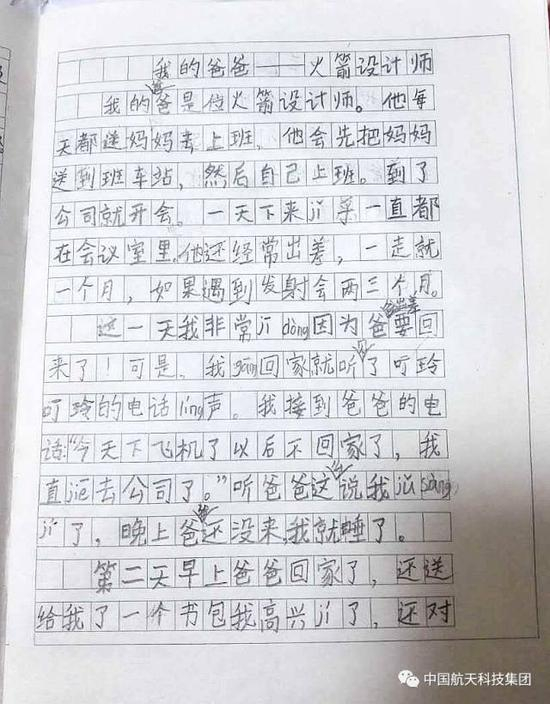 我的爸爸——火箭设计师
我的爸爸是位火箭设计师。他每
天都送妈妈去上班，他会先把妈妈
送到班车站，然后自己上班。到了
公司就开会。一天下来jī 一直都
在会议室里，他还经常出差，一走就
一个月，如果遇到发射会两三个月。
这一天我非常jī dòng因为爸爸出差要回
来了！可是，我gāng回家就听见了叮玲
叮玲的电话líng声。我接到爸爸的电
话：“今天下飞机了以后不回家了，我
直jiē去公司了。”听爸爸这么说我jǔ sàng
jí了，晚上爸爸还没来，我就睡了。
第二天早上爸爸回家了，还送
给我了一个书包我高兴jí了，还对
中国航天科技集团